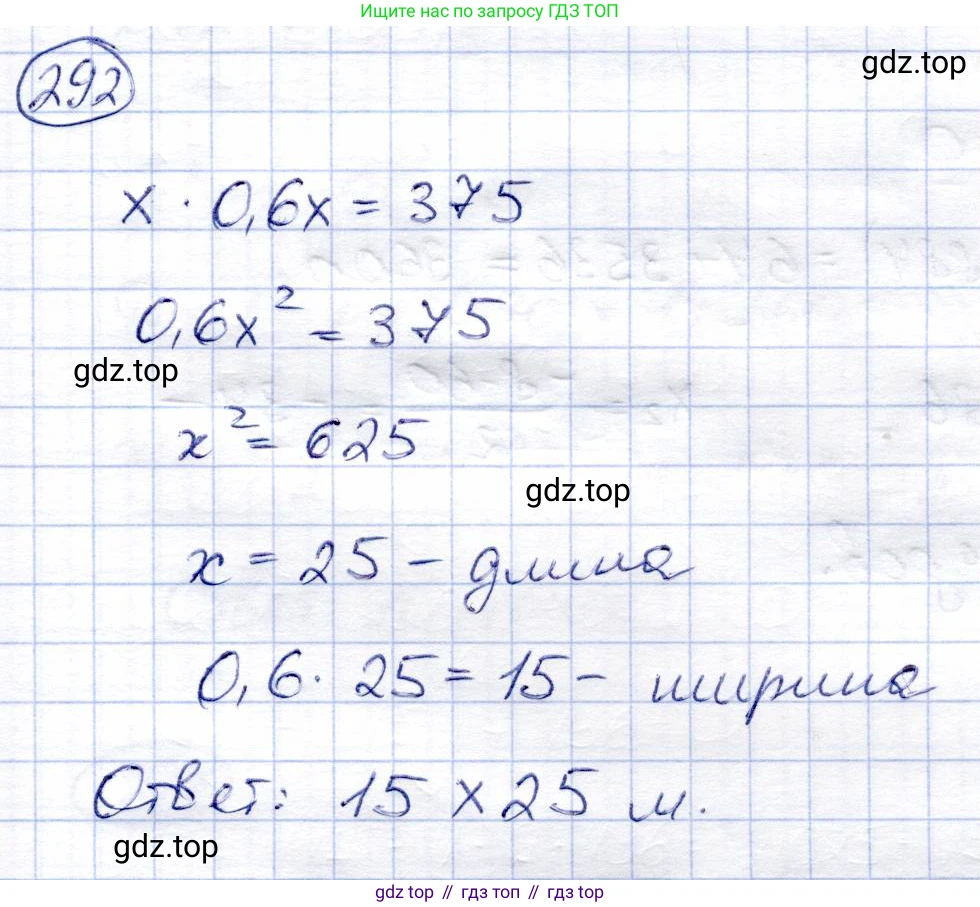 Ищите нас по запросу ГДЗ ТОП
292
gdz.top
x · 0,6x = 375
0,6x² = 375
gdz.top
x² = 625
gdz.top
x = 25 - длина
0,6 · 25 = 15 - ширина
Ответ: 15 x 25 м.
gdz.top
gdz top // гдз топ // gdz top